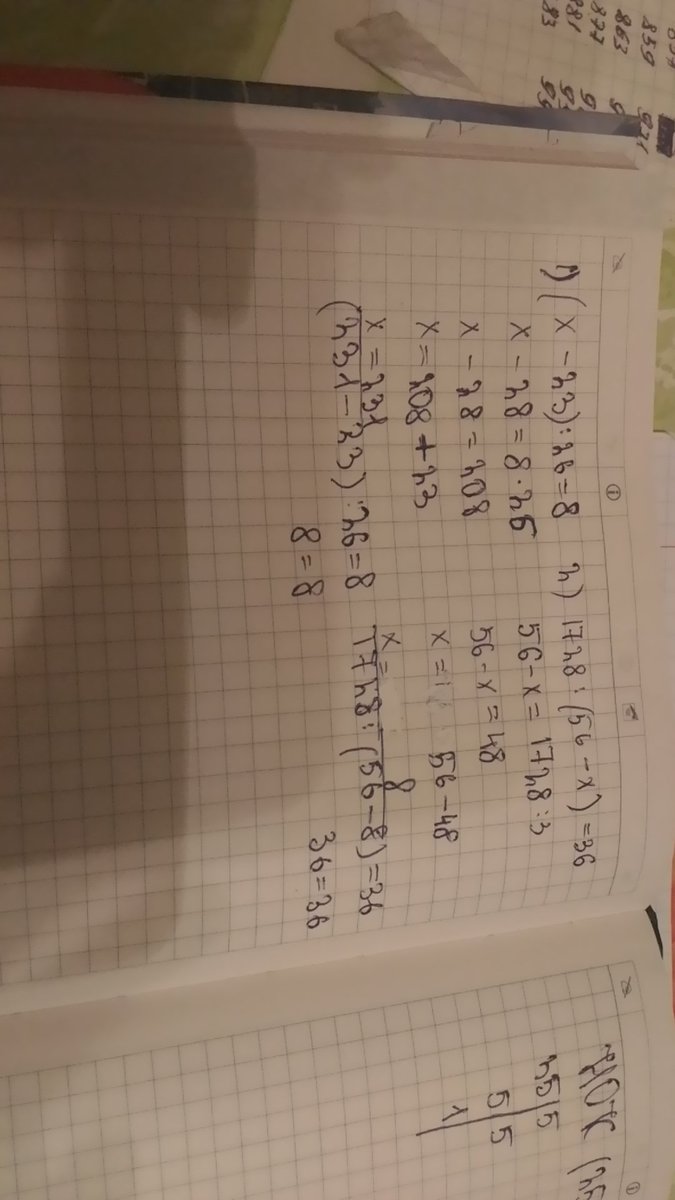 1) (x - 23) : 26 = 8
x - 28 = 8 · 26
x - 28 = 208
x = 208 + 23
x = 231
(231 - 23) : 26 = 8
8 = 8
2) 1728 : (56 - x) = 36
56 - x = 1728 : 3
56 - x = 48
x = 56 - 48
x = 8
1728 : (56 - 8) = 36
36 = 36
НОК (25
25 | 5
5 | 5
1 |
859
863
877
881